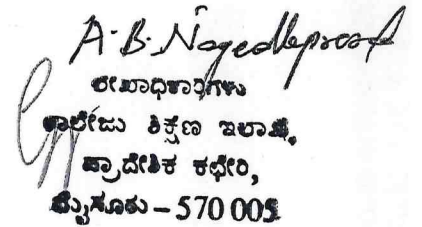 A. B. Nagendraprasad
ಲೇಖಾಧಿಕಾರಿಗಳು
ಕಾಲೇಜು ಶಿಕ್ಷಣ ಇಲಾಖೆ,
ಪ್ರಾದೇಶಿಕ ಕಛೇರಿ,
ಮೈಸೂರು – 570 005